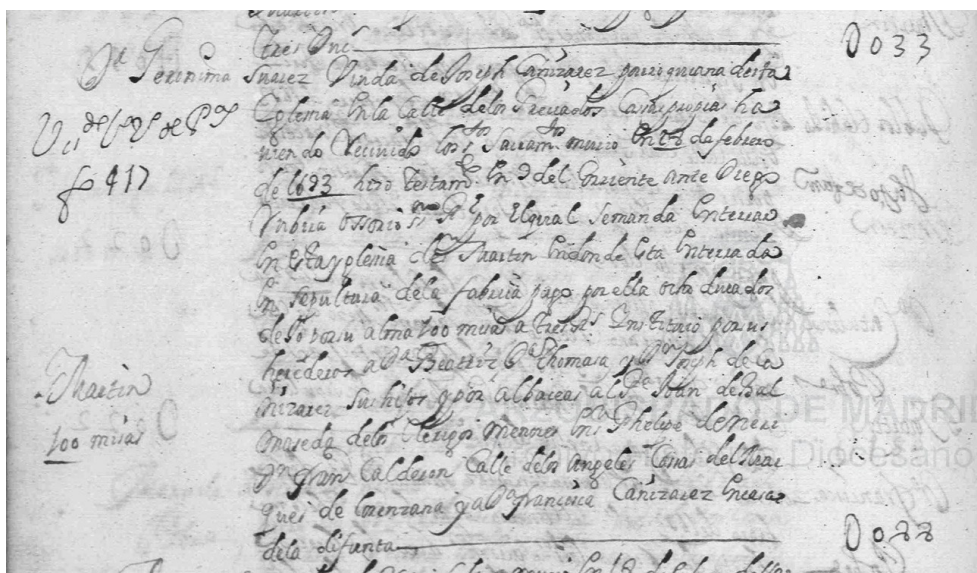 tres Dns
0033
Dª Geronima Suarez Viuda de Joseph Cañizarez parroquiana desta
Yglesia en la Calle de los Preciados Casas propias ha
viendo Recivido los stos Sacramtos murio en 18 de febrero
fo 417
de 1693 hizo testamto en 9 del Corriente ante Diego
ossorio essno Rl por el qual se manda enterrar
en esta yglesia de S Martin en donde esta enterrada
en sepultura de la fabrica pago por ella ocho ducados
de su alma 100 misas a tres Rs Instituio por sus
herederos a Dª Beatriz Dª Thomasa y Dn Joseph de Ca
S Martin
ñizarez sus hijos y por albaceas al Pe Juan de Bal
100 misas
maseda de los Clerigos Menores Dn Phelipe de
Calderon Calle de los Angeles Casas del Mar
ques de Lorenzana y a Dª francisca Cañizarez en casa
0088
de la difunta
ARZOBISPADO DE MADRID
Diocesano